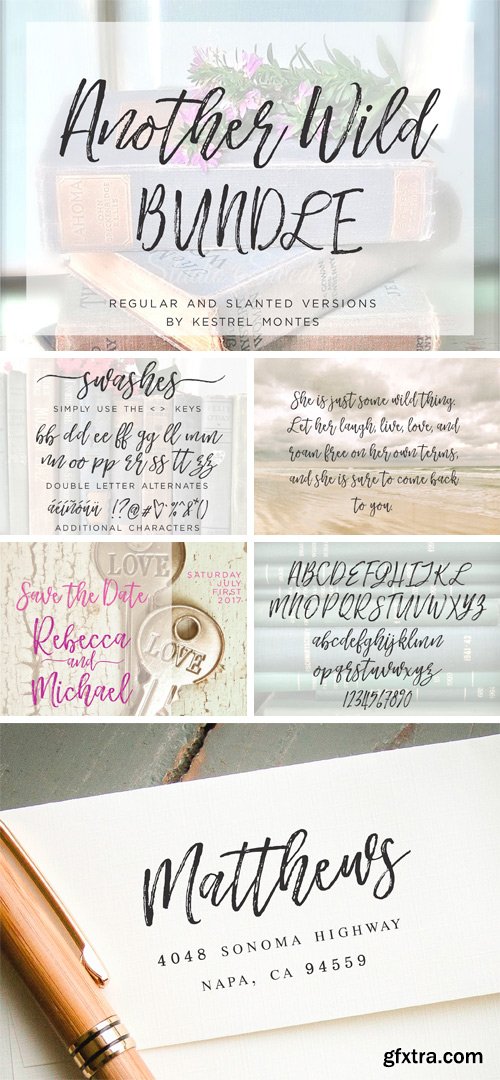 Another Wild
BUNDLE
REGULAR AND SLANTED VERSIONS
BY KESTREL MONTES
swashes
SIMPLY USE THE < > KEYS
bb dd ee ff gg ll mm
nn oo pp rr ss tt zz
DOUBLE LETTER ALTERNATES
ADDITIONAL CHARACTERS
She is just some wild thing.
Let her laugh, live, love, and
roam free on her own terms,
and she is sure to come back
to you.
Save the Date
SATURDAY
JULY
FIRST
2017
Rebecca
and
Michael
LOVE
LOVE
ABCDEFGHIJKL
MNOPQRSTUVWXYZ
abcdefghijklmn
opqrstuvwxyz
1234567890
Matthews
4048 SONOMA HIGHWAY
NAPA, CA 94559
gfxtra.com